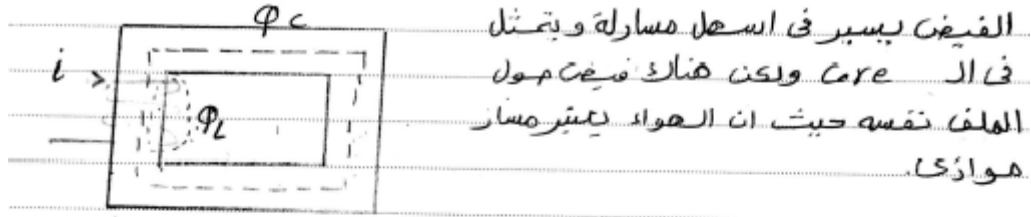 φc
i
φL
الفيض يسير فى اسهل مسار له و يتمثل
فى الـ Core ولكن هناك فيض حول
الملف نفسه حيث ان الهواء يعتبر مسار
موازى.